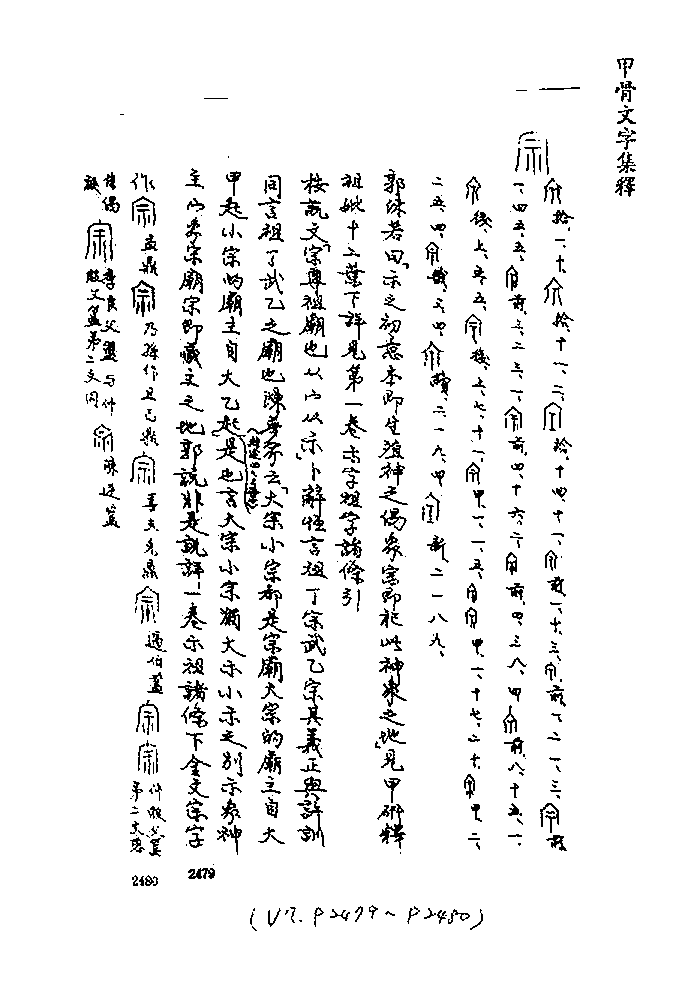 甲骨文字集釋
宗
拾、一、十、 拾、十一、二、 拾、十四、十一、 前、一、十、三、 前、一、二一、三、 前、
一、四五、五、 前、二、二三、一、 前、四、十六、二、 前、四、三八、四 前、八、十五、一、
後、上、五、五、 後、上、七、十一、 甲、一、一、五、 甲、一、十七、二十、 甲、二、
二五、四、 四 續、二、一九、四 新二一八九、
郭沫若曰「示之初意本即生殖神之偶象宗即祀此神象之地」見甲研釋
祖妣十二葉下詳見第一卷示字祖字諸條引
按說文「宗尊祖廟也从宀从示」卜辭恆言祖丁宗武乙宗其義正與許訓
同言祖丁武乙之廟也陳夢家云「大宗小宗都是宗廟大宗的廟主自大
甲起小宗的廟主自大乙起」是也言大宗小宗猶大示小示之別示象神
主宀象宗廟宗即藏主之地郭說非是說詳一卷示祖諸條下金文宗字
作 盂鼎 乃孫作且己鼎 善夫克鼎 伯簋 仲殷父簋
第二文
偶 父盤 與仲 陳逆簋
殷父簋第二文同
2480
2479
(V7. P2479~P2480)